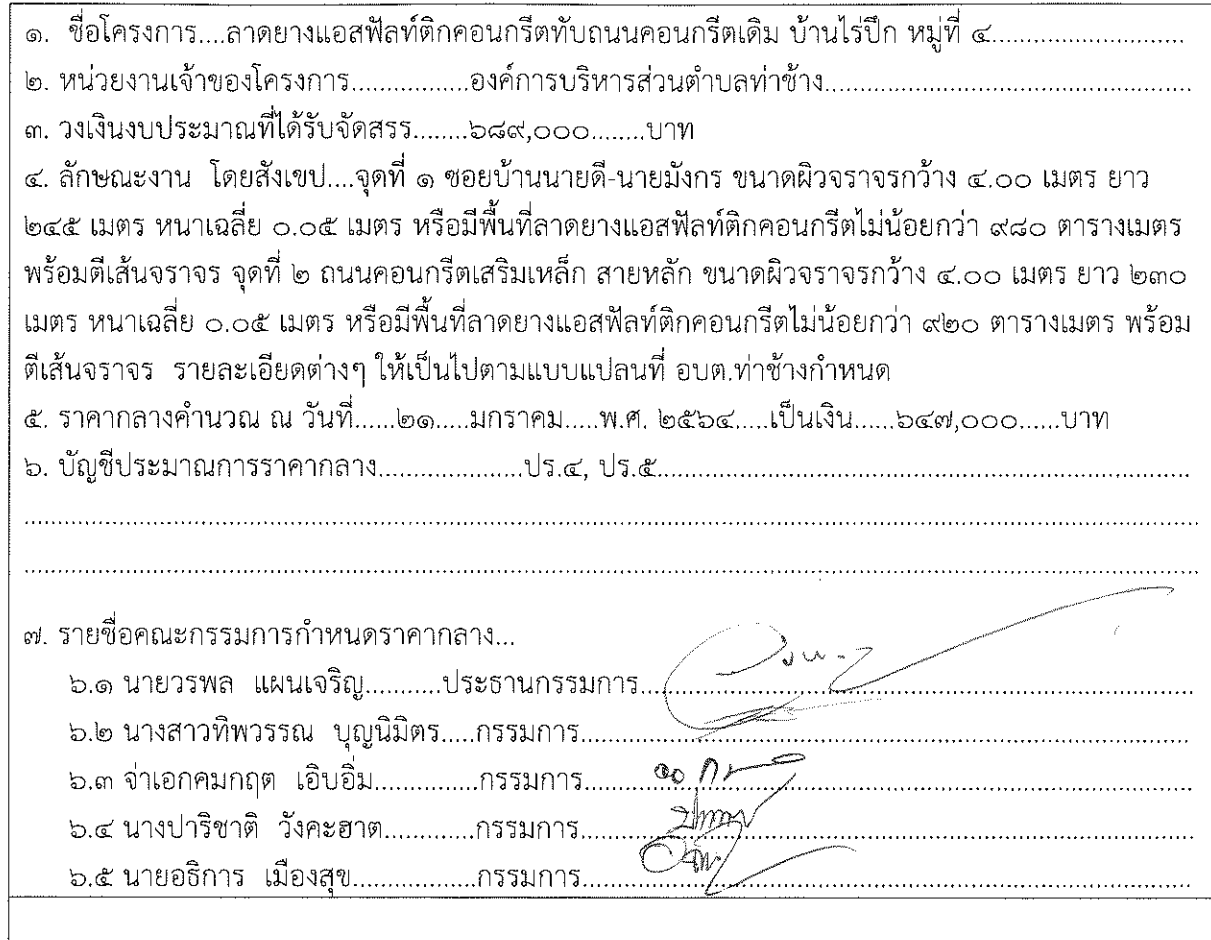 ๑. ชื่อโครงการ....ลาดยางแอสฟัลท์ติกคอนกรีตทับถนนคอนกรีตเดิม บ้านไร่ปึก หมู่ที่ ๔............................
๒. หน่วยงานเจ้าของโครงการ.................องค์การบริหารส่วนตำบลท่าช้าง......................................................
๓. วงเงินงบประมาณที่ได้รับจัดสรร........๖๘๙,๐๐๐........บาท
๔. ลักษณะงาน โดยสังเขป....จุดที่ ๑ ซอยบ้านนายดี-นายมังกร ขนาดผิวจราจรกว้าง ๔.๐๐ เมตร ยาว
๒๔๕ เมตร หนาเฉลี่ย ๐.๐๕ เมตร หรือมีพื้นที่ลาดยางแอสฟัลท์ติกคอนกรีตไม่น้อยกว่า ๙๘๐ ตารางเมตร
พร้อมตีเส้นจราจร จุดที่ ๒ ถนนคอนกรีตเสริมเหล็ก สายหลัก ขนาดผิวจราจรกว้าง ๔.๐๐ เมตร ยาว ๒๓๐
เมตร หนาเฉลี่ย ๐.๐๕ เมตร หรือมีพื้นที่ลาดยางแอสฟัลท์ติกคอนกรีตไม่น้อยกว่า ๙๒๐ ตารางเมตร พร้อม
ตีเส้นจราจร รายละเอียดต่างๆ ให้เป็นไปตามแบบแปลนที่ อบต.ท่าช้างกำหนด
๕. ราคากลางคำนวณ ณ วันที่......๒๑.....มกราคม.....พ.ศ. ๒๕๖๔.....เป็นเงิน......๖๔๗,๐๐๐......บาท
๖. บัญชีประมาณการราคากลาง....................ปร.๔, ปร.๕..............................................................................
๗. รายชื่อคณะกรรมการกำหนดราคากลาง...
๖.๑ นายวรพล แผนเจริญ...........ประธานกรรมการ
๖.๒ นางสาวทิพวรรณ บุญนิมิตร.....กรรมการ
๖.๓ จ่าเอกคมกฤต เอิบอิ่ม...............กรรมการ
๖.๔ นางปาริชาติ วังคะฮาต.............กรรมการ
๖.๕ นายอธิการ เมืองสุข..................กรรมการ